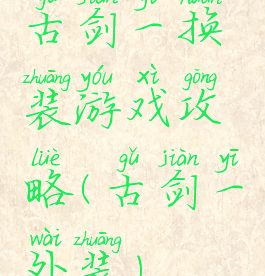 gǔ jiàn yī huàn
古剑一换
zhuāng yóu xì gōng
装游戏攻
lüè gǔ jiàn yī
略(古剑一
wài zhuāng
外装)